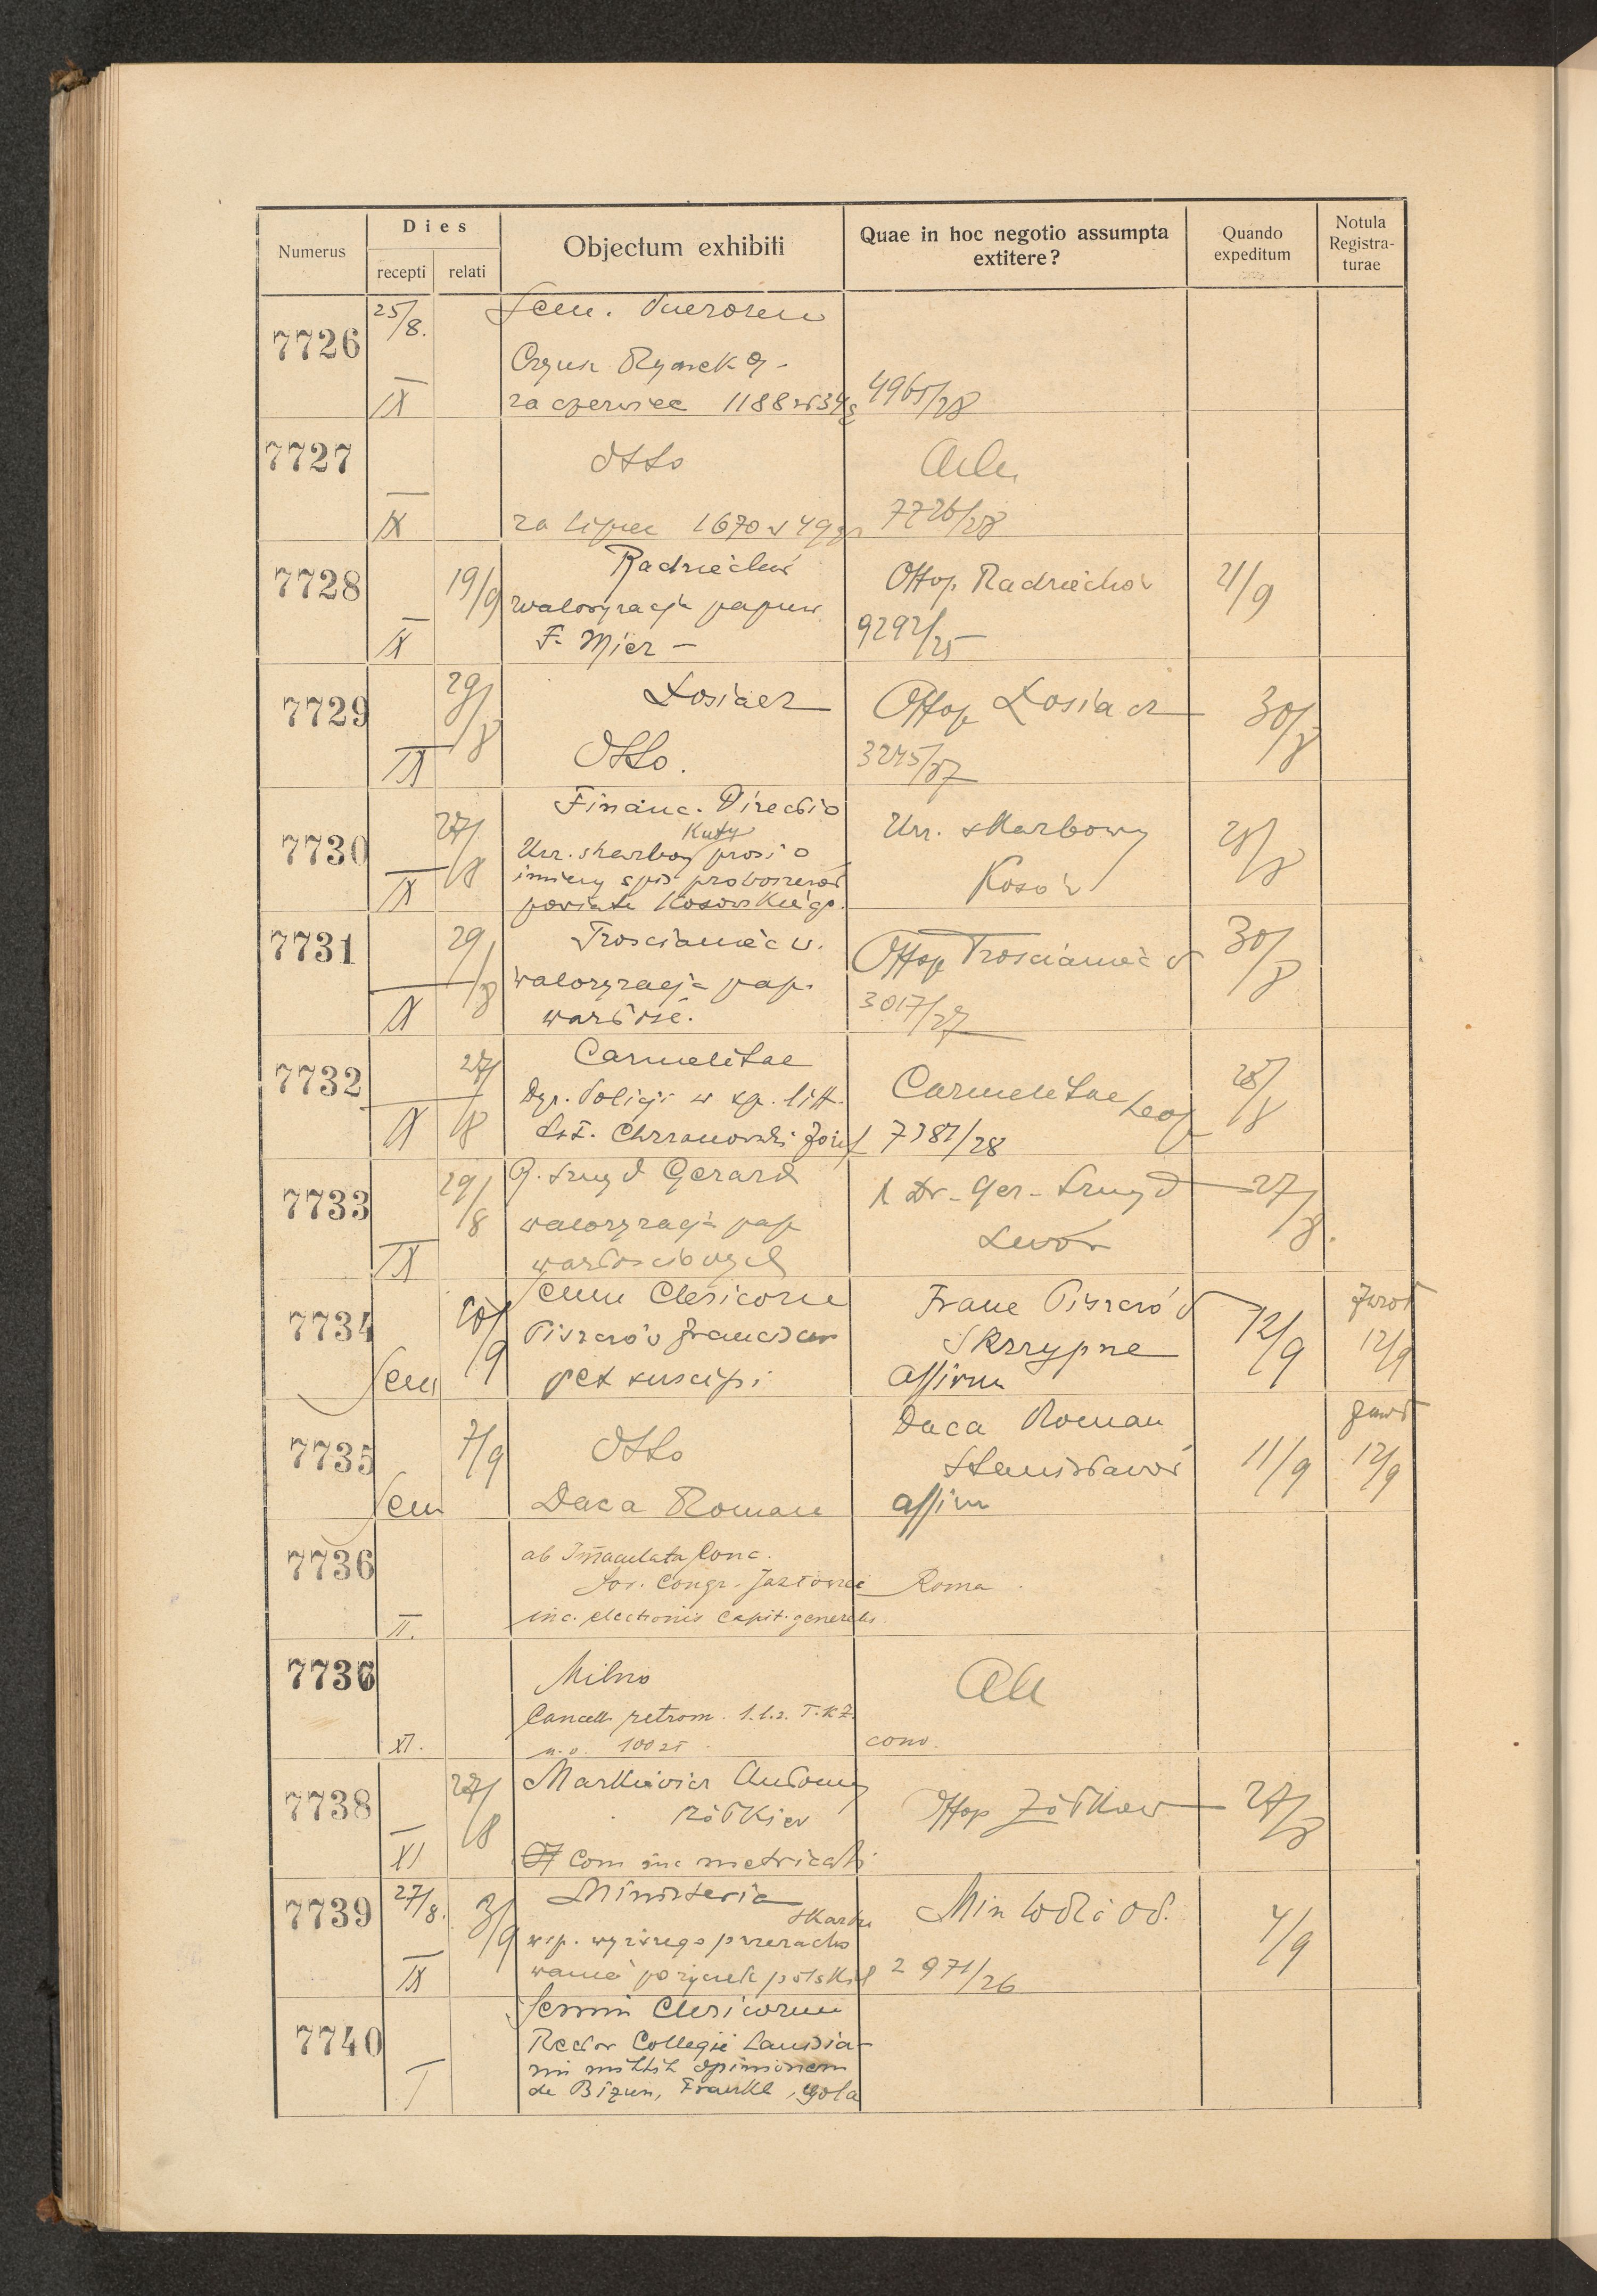 Numerus
Dies
recepti
relati
Objectum exhibiti
Quae in hoc negotio assumpta
extitere?
Quando
expeditum
Notula
Registra-
turae
7726
25/8.
IX
Sem. Puerorum
Czynsz Rynek 9 -
za czerwiec 1188
4965/28
7727
IX
dtto
za lipiec 1670
7726/28
7728
19/9
IX
Radziechów
waloryzacja
F. Mier -
Offop Radziechów
9292/25
21/9
7729
29/8
IX
Łosiacz
dtto.
Offop Łosiacz
3245/27
30/8
7730
27/8
IX
Financ. Directio
Kuty
Urz. skarbowy prosi o
imienny spis proboszczów
powiatu Kosowskiego.
Urz. skarbowy
Kosów
28/8
7731
29/8
IX
Trościaniec w.
waloryzacja pap.
wartość.
Offop Trościaniec w
3017/27
30/8
7732
27/8
IX
Carmelitae
Dyr. Policji w sp. litt.
Chrzanowski Józef
Carmelitae Leop
7381/28
28/8
7733
29/8
IX
Szmyd Gerard
waloryzacja pap
wartościowych
Dr. Ger. Szmyd
Lwów
27/8.
7734
10/9
Sem
Sem Clericorum
Piszczów Franciszek
pet suscipi
Franc Piszczów
Skrzypne
Affirm
12/9
Zwrot
12/9
7735
7/9
Sem
dtto
Daca Roman
Daca Roman
Stanisławów
affirm
11/9
Zwrot
12/9
7736
II.
ab Immaculata Conc.
Sor. Congr. Jazłowiec
inc. electionis capit. generalis.
Roma
7736
XI.
Milno
Cancell. matrim. 1.1.2. T.K.Z.
100 zł
Ad
conv.
7738
27/8
XI
Markiewicz Antoni
Żółkiew
Com inc metricali
Offop Żółkiew
27/8
7739
27/8.
3/9
IX
Ministeria
skarbu
wsp. wyższego przeracho
wania pożyczek polskich
Min WR i OP.
2971/26
4/9
7740
I
Semin Clericorum
Rector Collegii Canisia-
ni mittit opinionem
de Bizun, Frankl, Gola